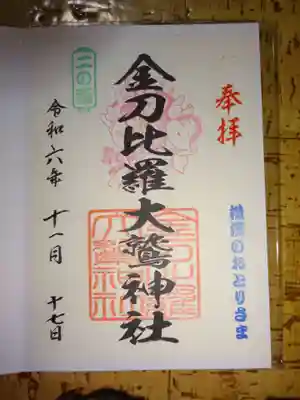 奉拝
横濱のおとりさま
金刀比羅大鷲神社
二の酉
令和六年 十一月 十七日